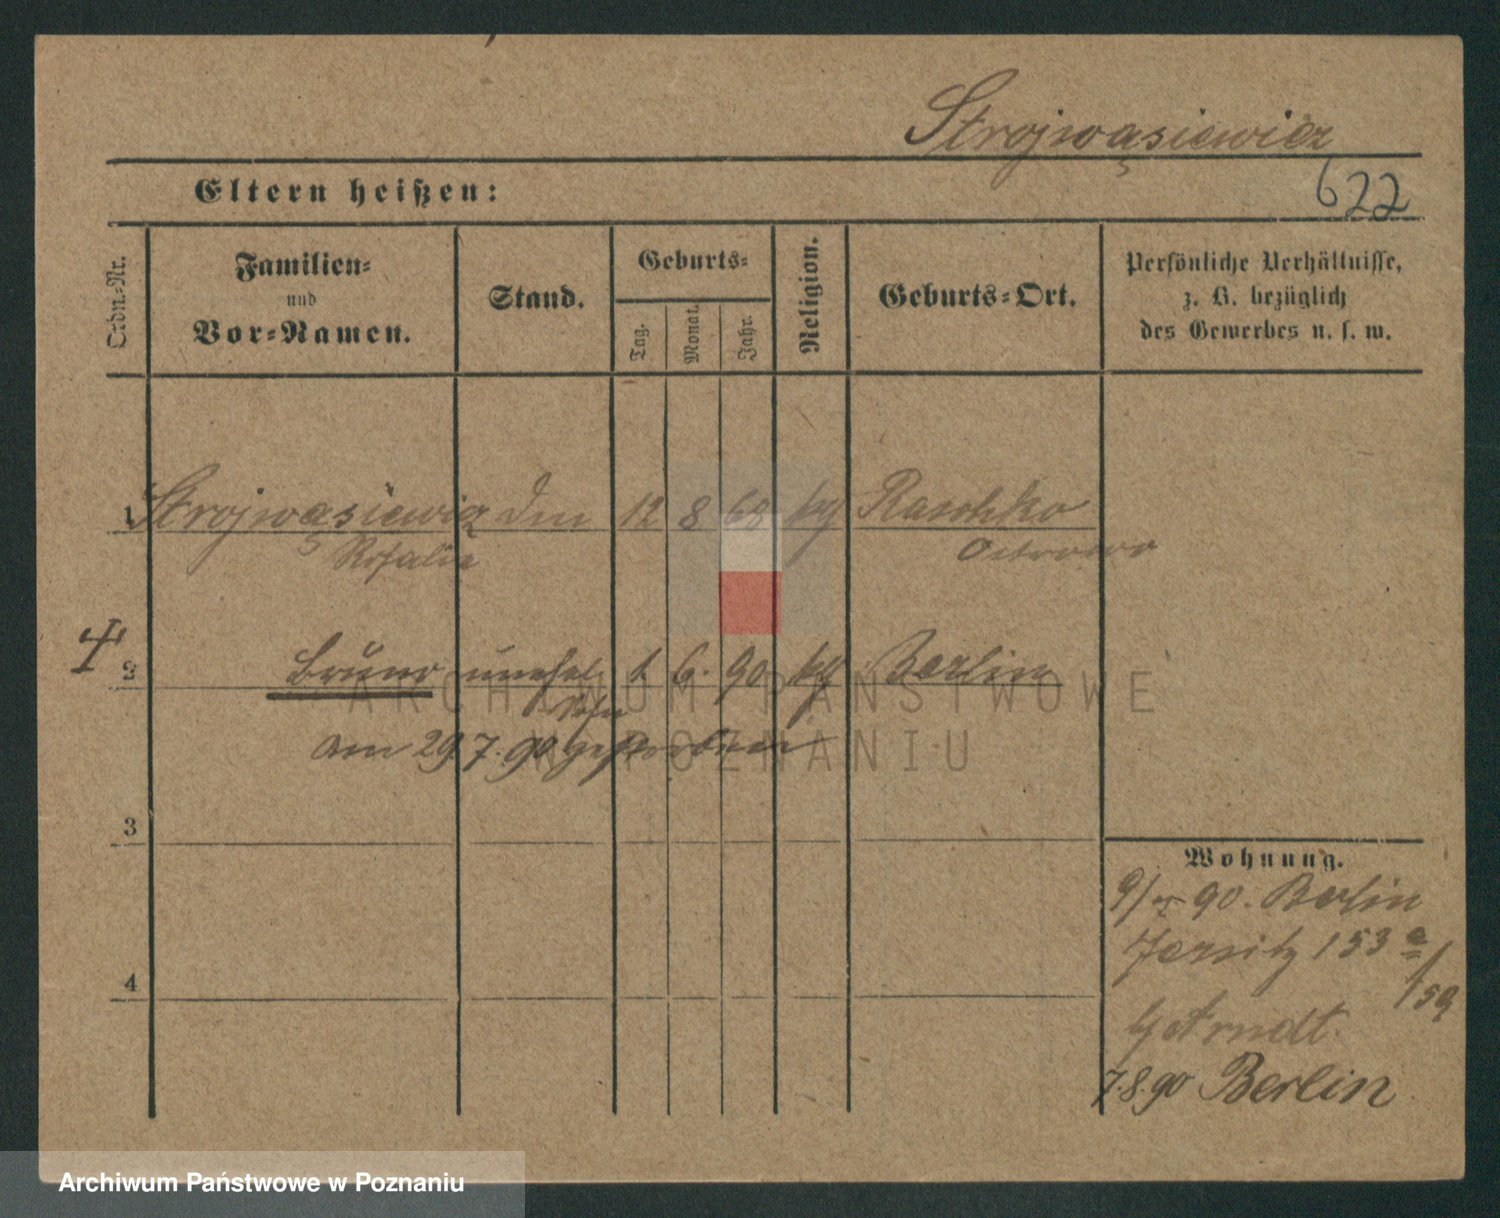 Strojwąsiewicz
Eltern heißen:
622
Ordn.-Nr.
Familien-
und
Vor-Namen.
Stand.
Geburts-
Tag.
Monat.
Jahr.
Religion.
Geburts-Ort.
Persönliche Verhältnisse,
z. B. bezüglich
des Gewerbes u. s. w.
1 Strojwąsiewicz 12 8 68 kth Raschko
Rosalie Ostrowo
2 Bruno unehel. 1 6. 90 kth Berlin
Sohn
am 29.7.90 gestorben
3
Wohnung.
90. Berlin
Jersitz 153 a/59
4
b/ Arndt.
7.8.90 Berlin
ARCHIWUM PAŃSTWOWE
W POZNANIU
Archiwum Państwowe w Poznaniu